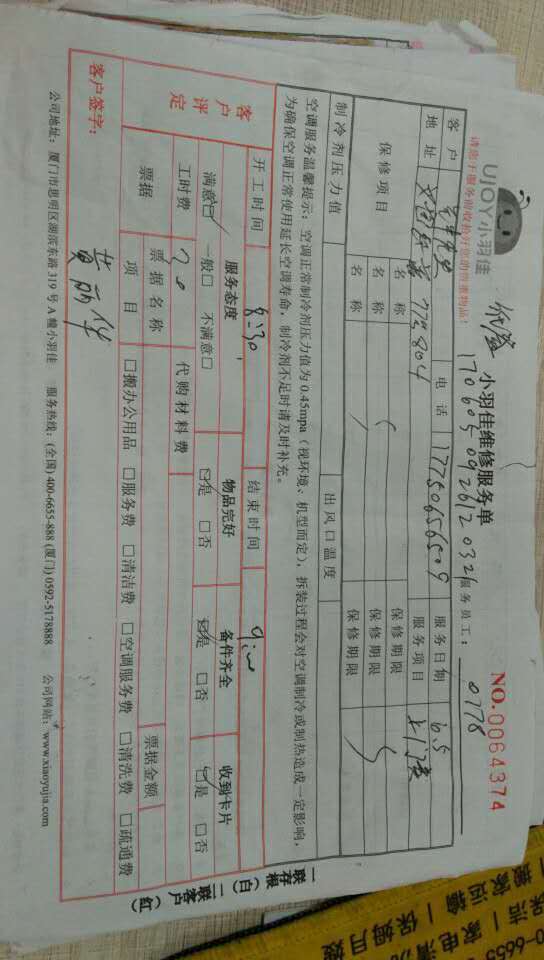 UJOY小羽佳
小羽佳维修服务单
NO.0064374
请您于服务前收拾好您的贵重物品!
170605092612032
服务员工:
0778
客户
电话
17750656509
服务日期
6.5
地址
775804
服务项目
保修项目
名称
保修期限
名称
保修期限
名称
保修期限
制冷剂压力值
出风口温度
空调服务温馨提示:空调正常制冷剂压力值为0.45mpa(视环境、机型而定),拆装过程会对空调制冷或制热造成一定影响,
为确保空调正常使用延长空调寿命,制冷剂不足时请及时补充。
开工时间
8:30
结束时间
9:00
客户评定
服务态度
物品完好
备件齐全
收到卡片
满意☑ 一般□ 不满意□
☑是 □否
☑是 □否
☑是 □否
工时费
70
代购材料费
票据
票据名称
票据金额
项目
□搬办公用品 □服务费 □清洁费 □空调服务费 □清洗费 □疏通费
客户签字:
黄丽华
公司地址:厦门市思明区湖滨东路319号A幢小羽佳 服务热线:(全国)400-6655-888(厦门)0592-5178888 公司网站:www.xiaoyujia.com
一联存根(白) 二联客户(红)
搬家运输 | 保姆月嫂